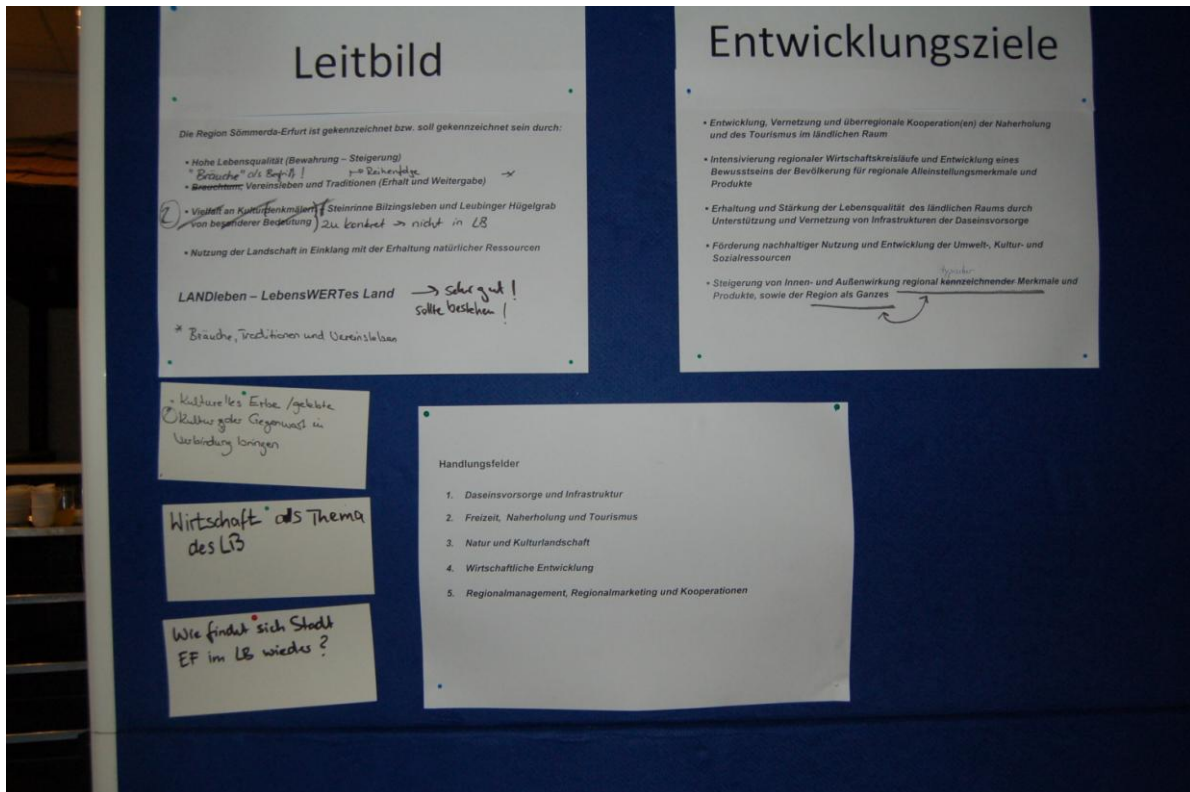 Leitbild
Die Region Sömmerda-Erfurt ist gekennzeichnet bzw. soll gekennzeichnet sein durch:
• Hohe Lebensqualität (Bewahrung – Steigerung)
"Bräuche" als Begriff! → Reihenfolge
• Brauchtum, Vereinsleben und Traditionen (Erhalt und Weitergabe)
• Vielfalt an Kulturdenkmälern Steinrinne Bilzingsleben und Leubinger Hügelgrab
von besonderer Bedeutung) zu konkret → nicht in LB
• Nutzung der Landschaft in Einklang mit der Erhaltung natürlicher Ressourcen
LANDleben – LebensWERTes Land → sehr gut!
sollte bestehen!
* Bräuche, Traditionen und Vereinsleben
Entwicklungsziele
• Entwicklung, Vernetzung und überregionale Kooperation(en) der Naherholung
und des Tourismus im ländlichen Raum
• Intensivierung regionaler Wirtschaftskreisläufe und Entwicklung eines
Bewusstseins der Bevölkerung für regionale Alleinstellungsmerkmale und
Produkte
• Erhaltung und Stärkung der Lebensqualität des ländlichen Raums durch
Unterstützung und Vernetzung von Infrastrukturen der Daseinsvorsorge
• Förderung nachhaltiger Nutzung und Entwicklung der Umwelt-, Kultur- und
Sozialressourcen
typischer
• Steigerung von Innen- und Außenwirkung regional kennzeichnender Merkmale und
Produkte, sowie der Region als Ganzes
- Kulturelles Erbe / gelebte
Kultur der Gegenwart in
Verbindung bringen
Wirtschaft als Thema
des LB
Wie findet sich Stadt
EF im LB wieder?
Handlungsfelder
1. Daseinsvorsorge und Infrastruktur
2. Freizeit, Naherholung und Tourismus
3. Natur und Kulturlandschaft
4. Wirtschaftliche Entwicklung
5. Regionalmanagement, Regionalmarketing und Kooperationen